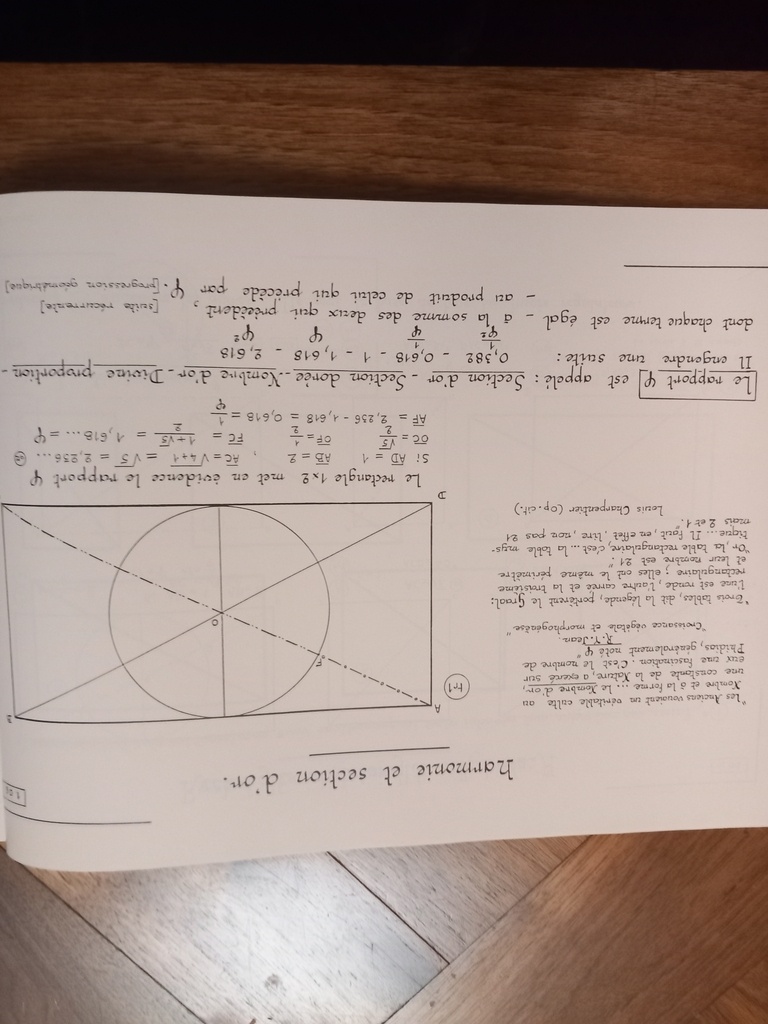 harmonie et section d'or.
"Les Anciens vouaient un véritable culte au
Nombre et à la forme ... le Nombre d'or,
une constante de la Nature, a exercé sur
eux une fascination. C'est le nombre de
Phidias, généralement noté φ"
R.V. Jean.
"Croissance végétale et morphogénèse"
"Trois tables, dit la légende, portèrent le Graal:
l'une est ronde, l'autre carrée et la troisième
rectangulaire; elles ont le même périmètre
et leur nombre est 21."
"Or, la table rectangulaire, c'est ... la table mys-
tique ... Il faut, en effet, lire, non pas 21
mais 2 et 1."
Louis Charpentier (op. cit.)
tr1
A
B
F
O
D
Le rectangle 1x2 met en évidence le rapport φ
Si AD = 1 AB = 2 , AC = √4+1 = √5 = 2,236...
OC = √5/2 OF = 1/2 FC = 1+√5/2 = 1,618... = φ
AF = 2,236 - 1,618 = 0,618 = 1/φ
Le rapport φ est appelé : Section d'or - Section dorée - Nombre d'or - Divine proportion -
Il engendre une suite : 0,382 - 0,618 - 1 - 1,618 - 2,618
1/φ² 1/φ φ φ²
dont chaque terme est égal - à la somme des deux qui précèdent, [suite récurrente]
- au produit de celui qui précède par φ. [progression géométrique]